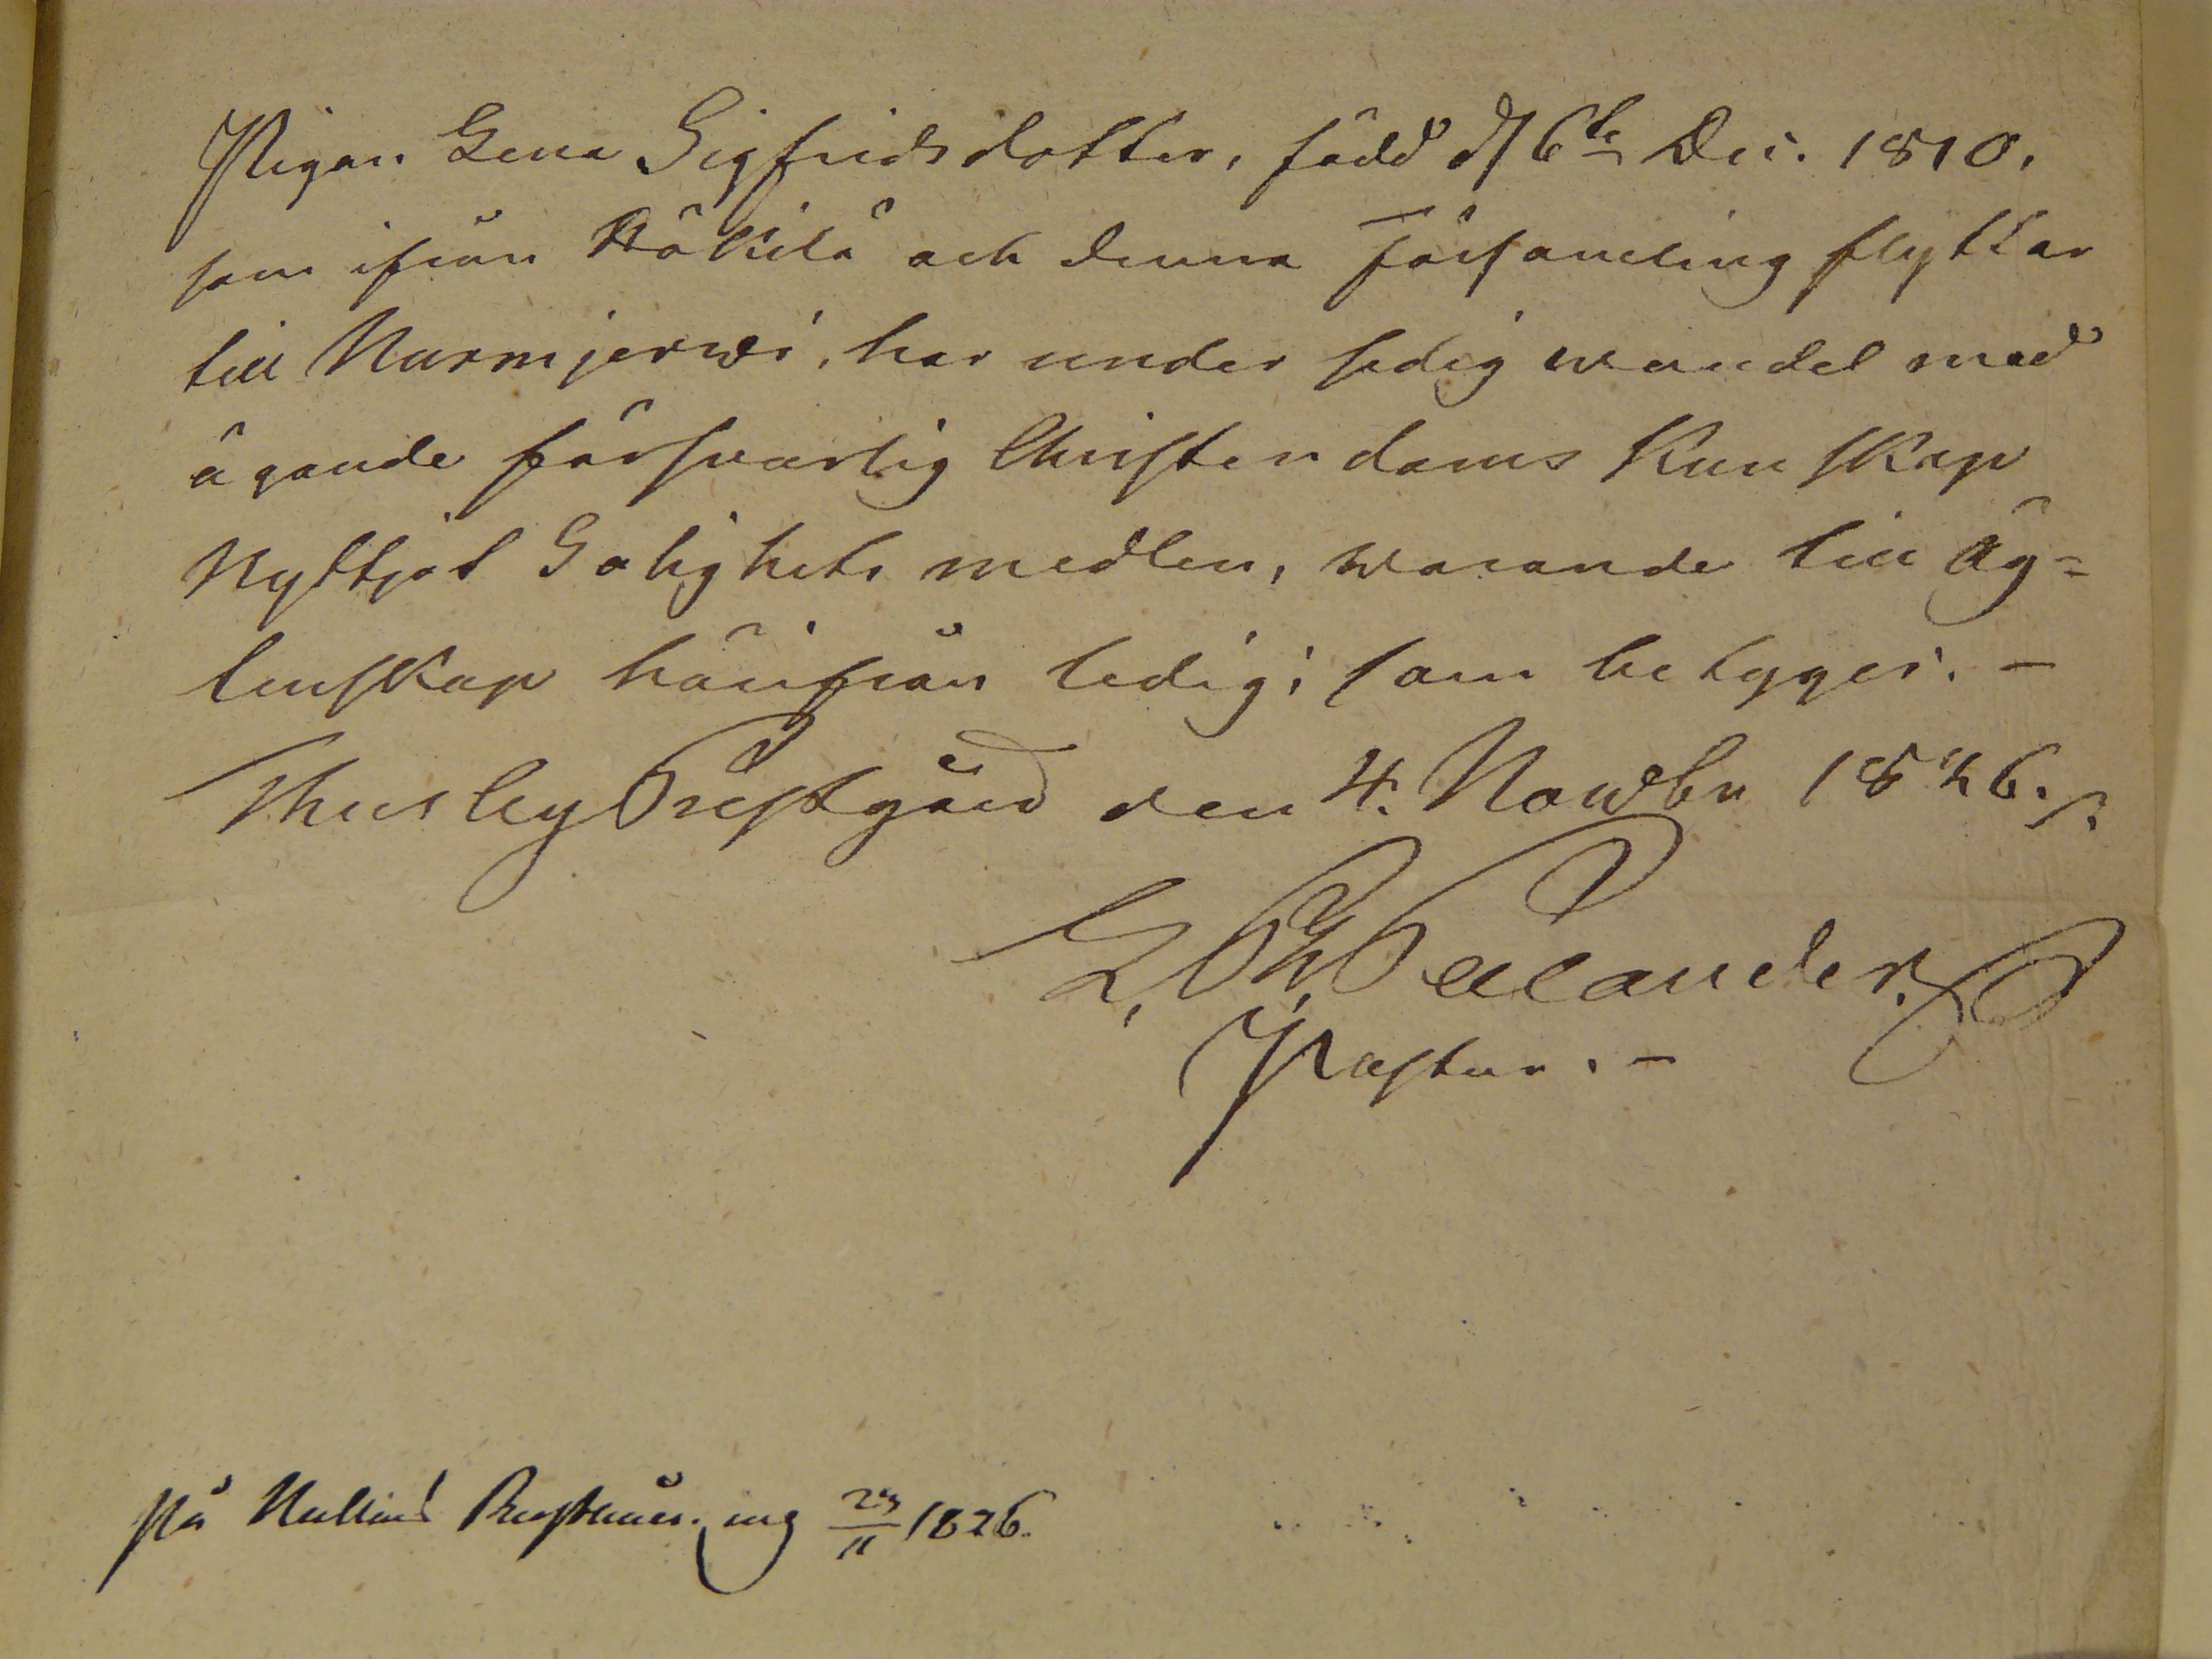 Pigan Lena Sigfridsdotter, född d 6te Dec. 1810,
som ifrån Kökilä och denna Församling flyttar
till Nurmjerwi, har under sedig wandel med
ägande försvarlig Christendoms Kunskap
Nyttjat Salighets medlen, warande till Äg-
tenskap härifrån ledig; som betyger. -
Thusby Prestgård den 4. Nowbr 1826.
Palander.
Pastur. -
På 1826.